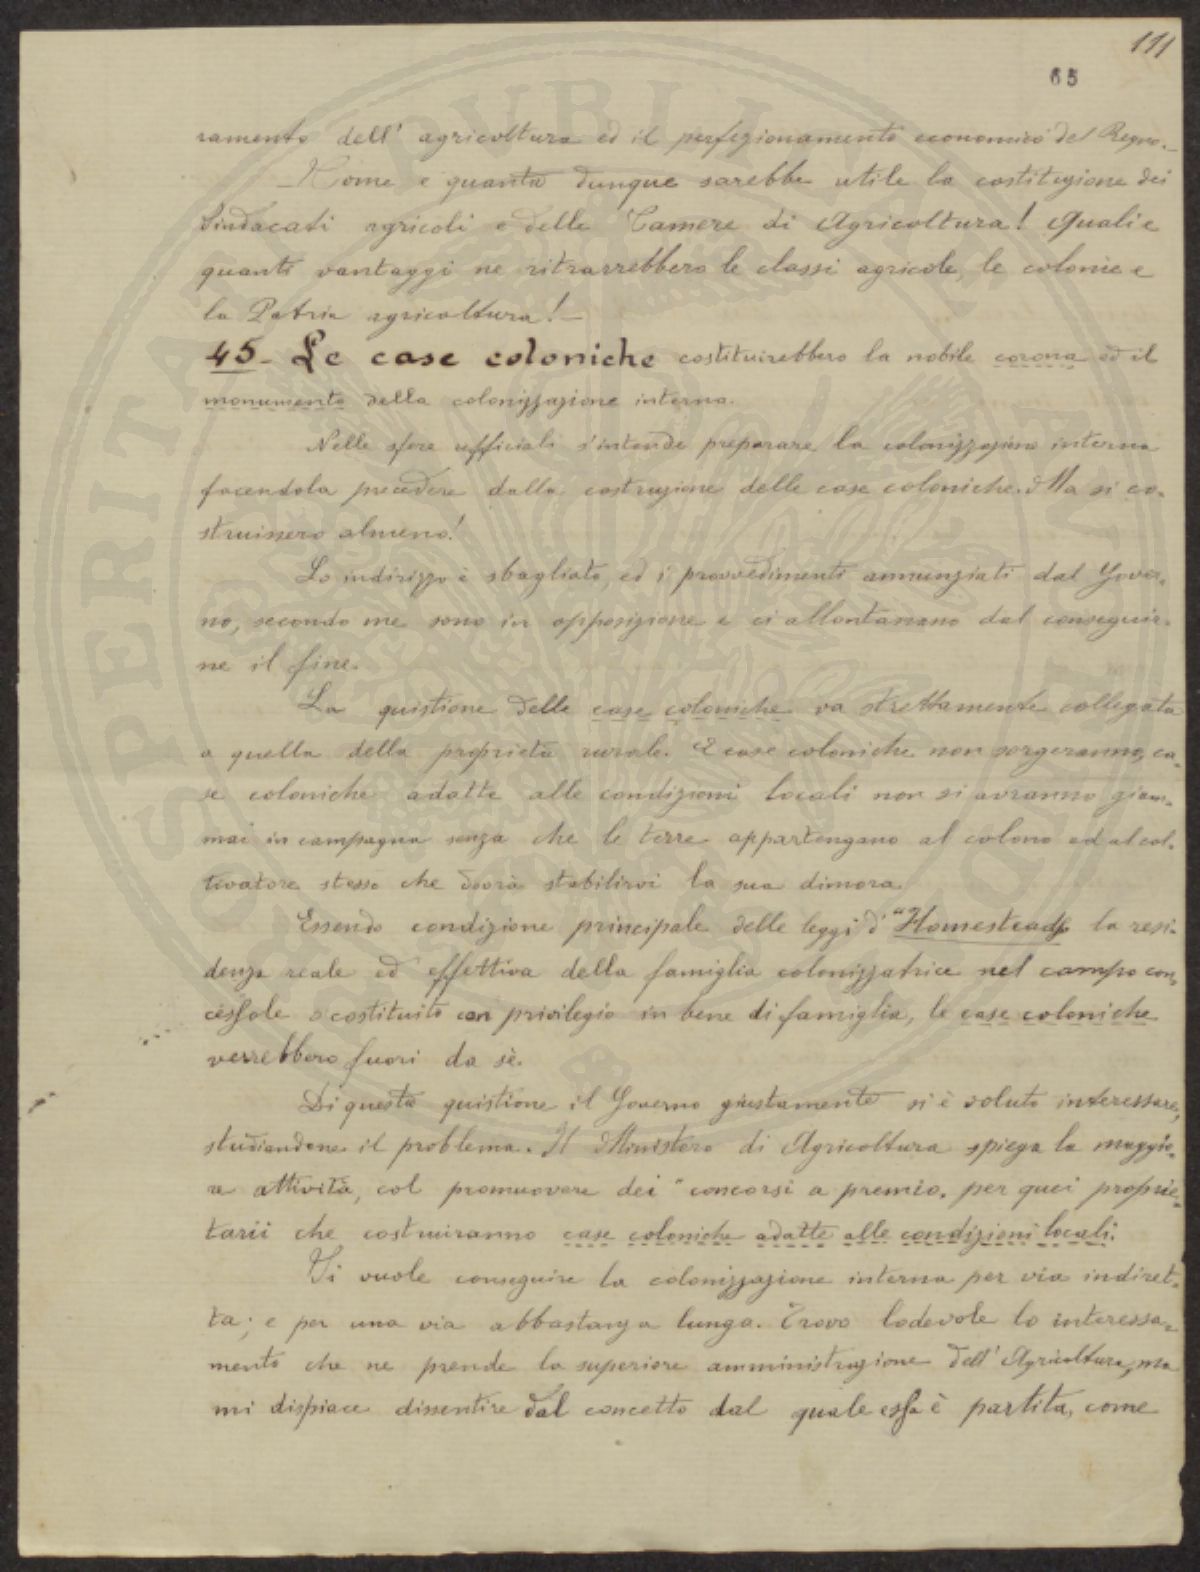 111
65
ramento dell' agricoltura ed il perfezionamento economico del Regno.
Come e quanto dunque sarebbe utile la costituzione dei
Sindacati agricoli e delle Camere di Agricoltura! Quali e
quanti vantaggi ne ritrarrebbero le classi agricole, le colonie e
la Patria agricoltura!
45 - Le case coloniche costituirebbero la nobile corona ed il
monumento della colonizzazione interna.
Nelle sfere ufficiali s'intende preparare la colonizzazione interna
facendola precedere dalla costruzione delle case coloniche. Ma si co-
struissero almeno!
Lo indirizzo è sbagliato, ed i provvedimenti annunziati dal Gover-
no, secondo me sono in opposizione e ci allontanano dal conseguir-
ne il fine.
La quistione delle case coloniche va strettamente collegata
a quella della proprietà rurale. E case coloniche non sorgeranno, ca-
se coloniche adatte alle condizioni locali non si avranno giam-
mai in campagna senza che le terre appartengano al colono ed al col-
tivatore stesso che dovrà stabilirvi la sua dimora.
Essendo condizione principale delle leggi d' "Homesteads la resi-
denza reale ed effettiva della famiglia colonizzatrice nel campo con-
cessole o costituito con privilegio in bene di famiglia, le case coloniche
verrebbero fuori da sè.
Di questa quistione il Governo giustamente si è voluto interessare,
studiandone il problema. Il Ministero di Agricoltura spiega la maggio-
re attività, col promuovere dei "concorsi a premio, per quei proprie-
tarii che costruiranno case coloniche adatte alle condizioni locali.
Si vuole conseguire la colonizzazione interna per via indiret-
ta; e per una via abbastanza lunga. Trovo lodevole lo interessa-
mento che ne prende la superiore amministrazione dell' Agricoltura, ma
mi dispiace dissentire dal concetto dal quale essa è partita, come
SPERITAS PUBLICA